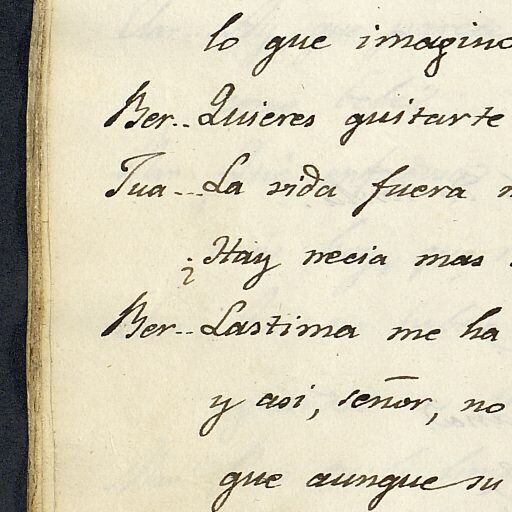 lo que imagino
Ber.. Quieres quitarte
Jua... La vida fuera
¿Hay necia mas
Ber.. Lastima me ha
y asi, señor, no
que aunque su